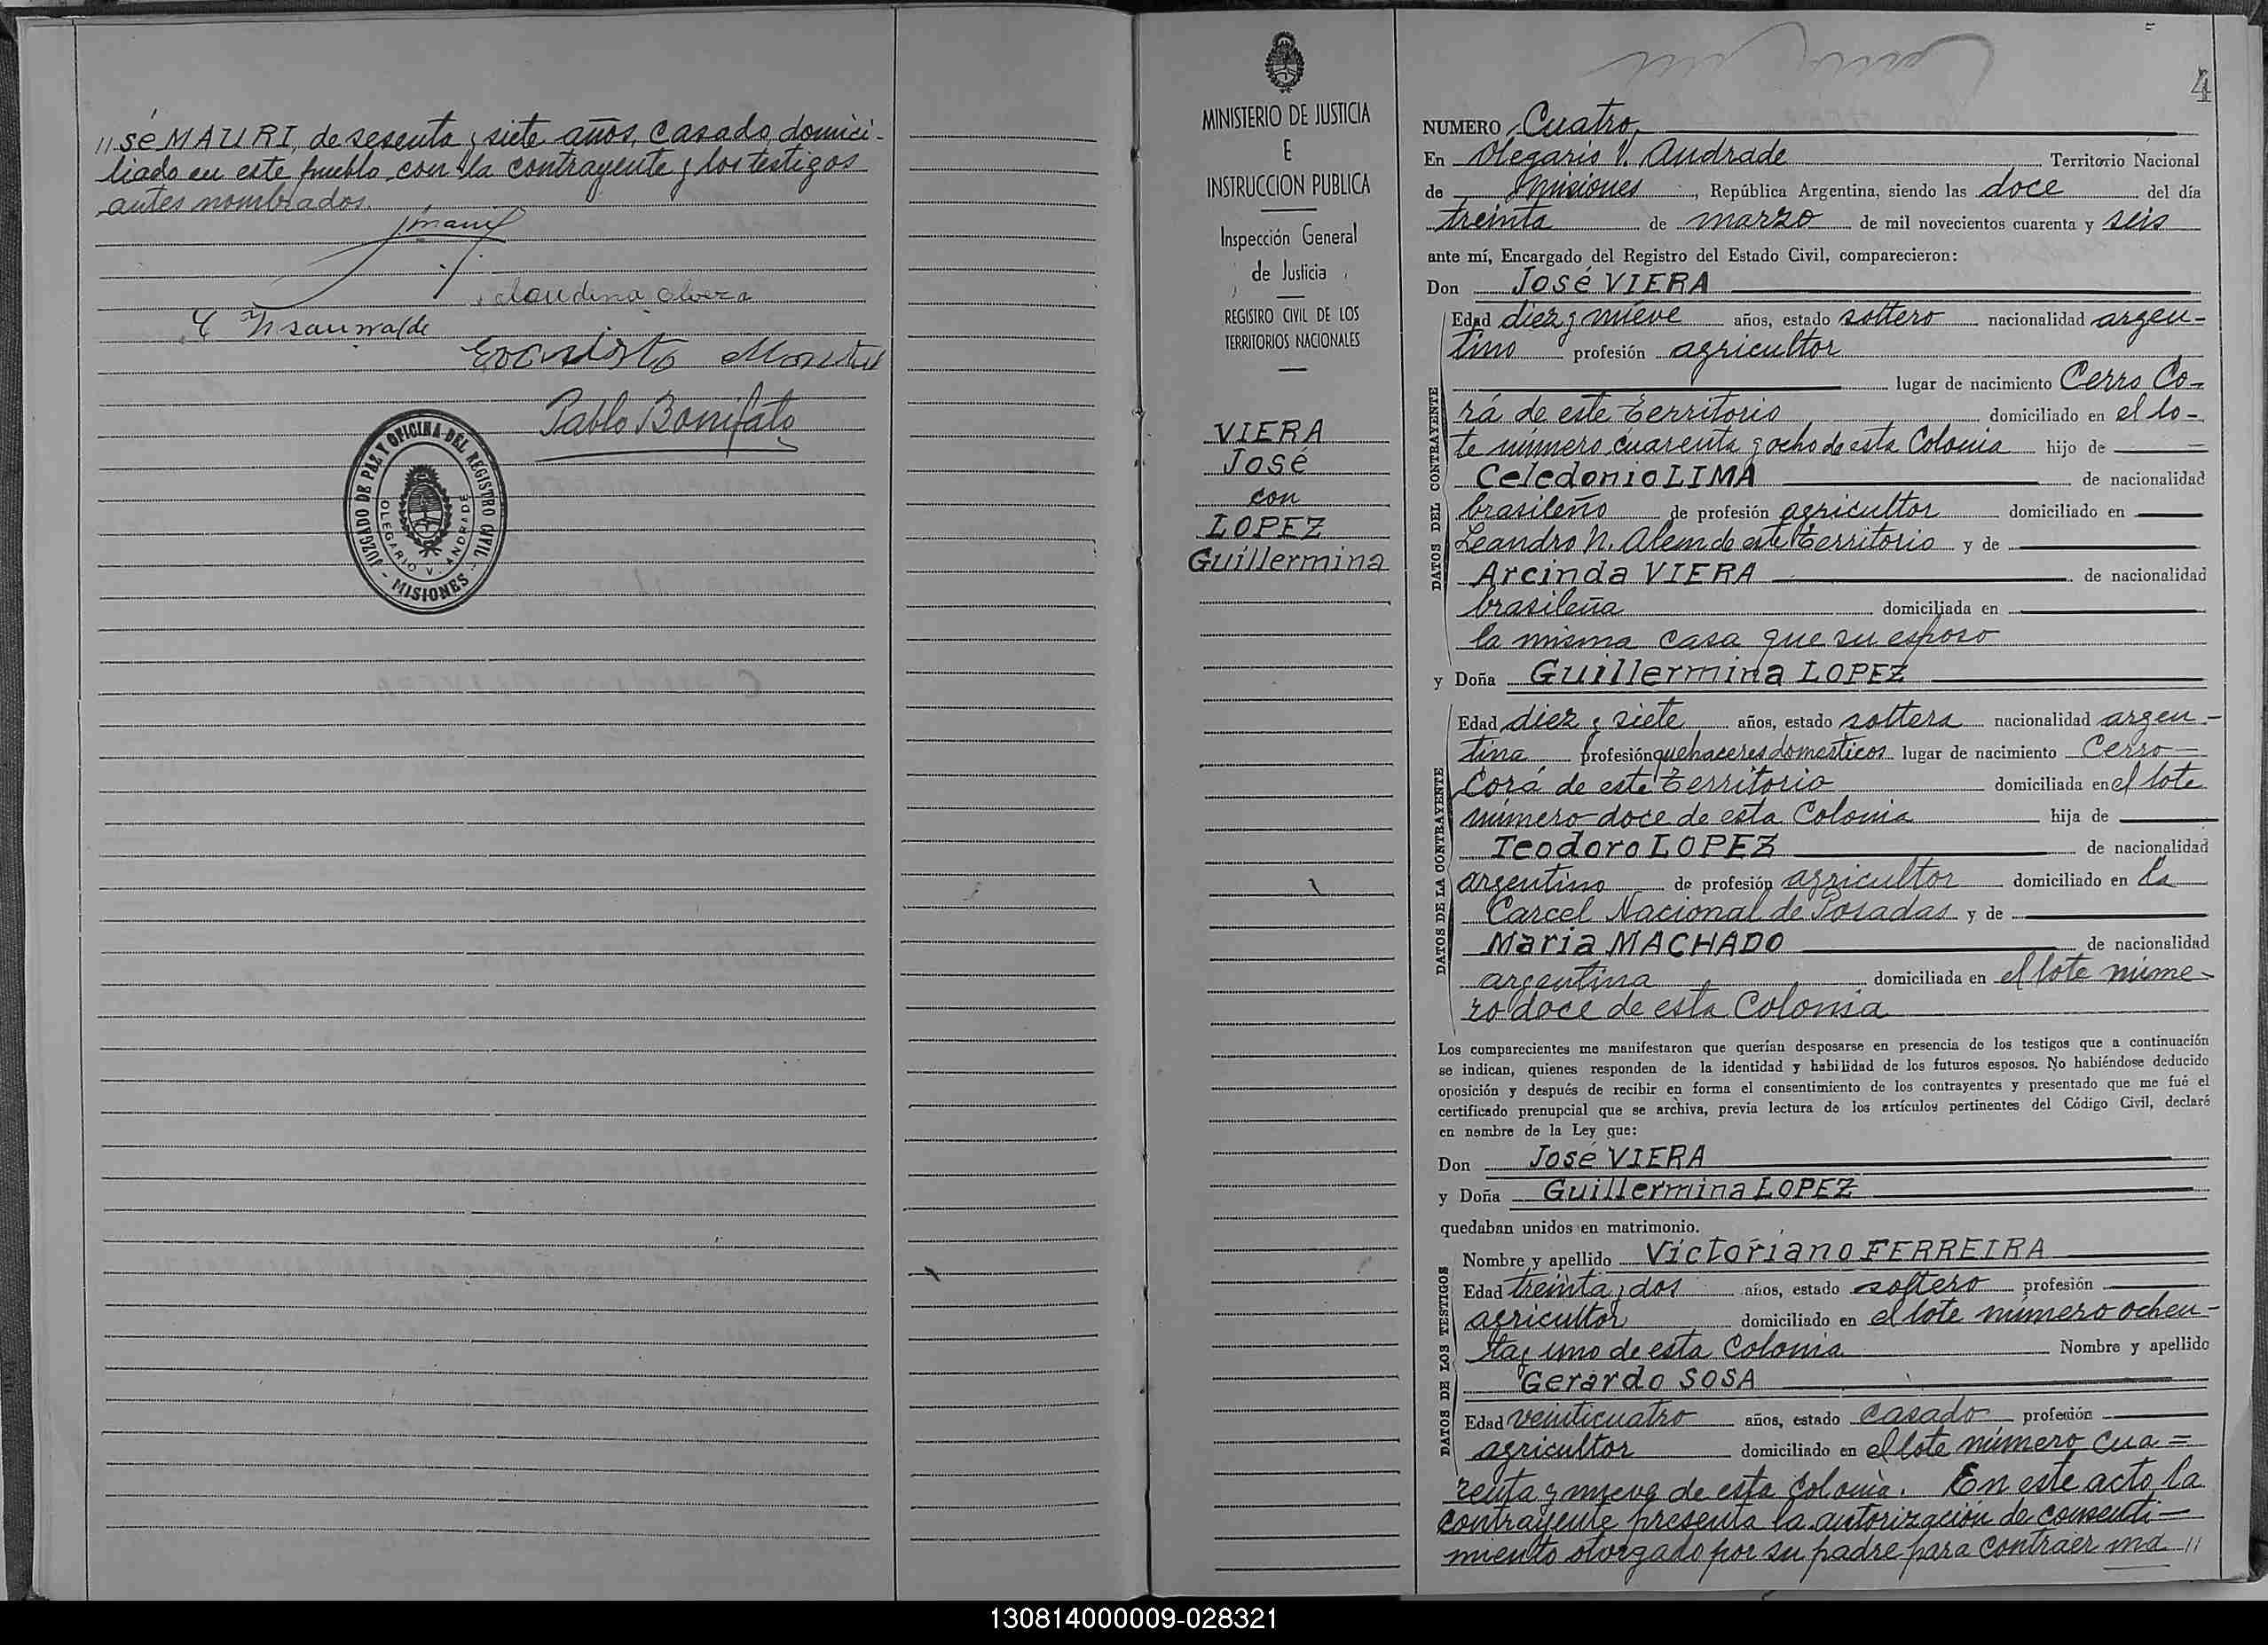 " sé MAURI, de sesenta y siete años, casado, domici-
liado en este pueblo, con la contrayente y los testigos
antes nombrados.
Pablo Bonifato
JUZGADO DE PAZ Y OFICINA DEL REGISTRO CIVIL
OLEGARIO V. ANDRADE
- MISIONES -
MINISTERIO DE JUSTICIA
E
INSTRUCCION PUBLICA
Inspección General
de Justicia
REGISTRO CIVIL DE LOS
TERRITORIOS NACIONALES
VIERA
José
con
LOPEZ
Guillermina
4
NUMERO Cuatro.
En Olegario V. Andrade Territorio Nacional
de Misiones, República Argentina, siendo las doce del día
treinta de marzo de mil novecientos cuarenta y seis
ante mí, Encargado del Registro del Estado Civil, comparecieron:
Don José VIERA
DATOS DEL CONTRAYENTE
Edad diez y nueve años, estado soltero nacionalidad argen-
tino profesión agricultor
lugar de nacimiento Cerro Co-
rá de este Territorio domiciliado en el lo-
te número cuarenta y ocho de esta Colonia hijo de
Celedonio LIMA de nacionalidad
brasileño de profesión agricultor domiciliado en
Leandro N. Alem de este Territorio y de
Arcinda VIERA de nacionalidad
brasileña domiciliada en
la misma casa que su esposo
y Doña Guillermina LOPEZ
DATOS DE LA CONTRAYENTE
Edad diez y siete años, estado soltera nacionalidad argen-
tina profesión quehaceres domesticos lugar de nacimiento Cerro
Corá de este Territorio domiciliada en el lote
número doce de esta Colonia hija de
Teodoro LOPEZ de nacionalidad
argentino de profesión agricultor domiciliado en la
Carcel Nacional de Posadas y de
Maria MACHADO de nacionalidad
argentina domiciliada en el lote núme-
ro doce de esta Colonia
Los comparecientes me manifestaron que querían desposarse en presencia de los testigos que a continuación
se indican, quienes responden de la identidad y habilidad de los futuros esposos. No habiéndose deducido
oposición y después de recibir en forma el consentimiento de los contrayentes y presentado que me fué el
certificado prenupcial que se archiva, previa lectura de los artículos pertinentes del Código Civil, declaré
en nombre de la Ley que:
Don José VIERA
y Doña Guillermina LOPEZ
quedaban unidos en matrimonio.
DATOS DE LOS TESTIGOS
Nombre y apellido Victoriano FERREIRA
Edad treinta y dos años, estado soltero profesión
agricultor domiciliado en el lote número ochen-
ta y uno de esta Colonia Nombre y apellido
Gerardo SOSA
Edad veinticuatro años, estado casado profesión
agricultor domiciliado en el lote número cua=
renta y nueve de esta Colonia. En este acto la
contrayente presenta la autorización de consenti-
miento otorgado por su padre para contraer ma "
130814000009-028321